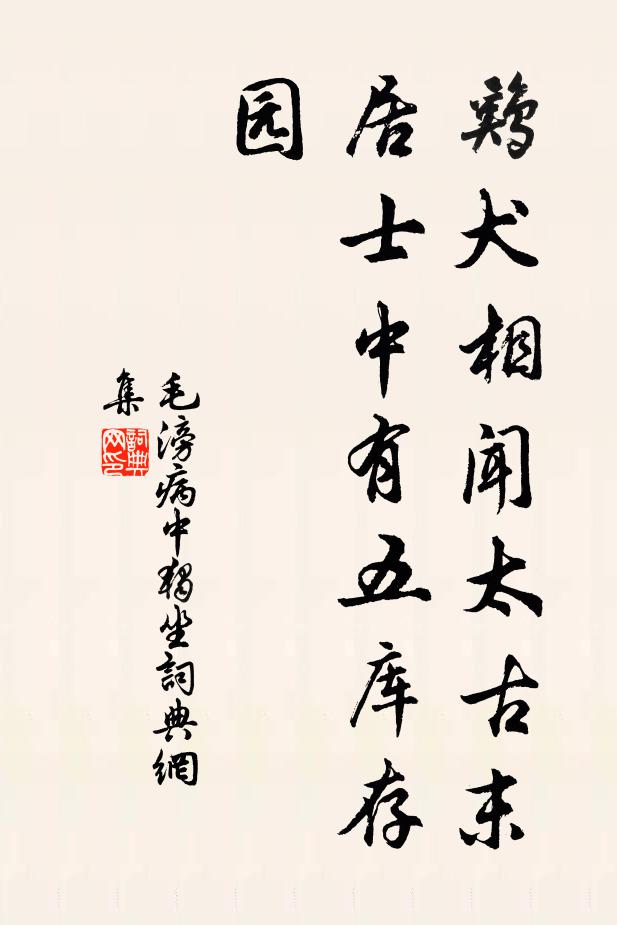 鷄犬相闻太古末
居士中有五库存
园
毛滂病中獨坐詞典網
集
詞典
网印